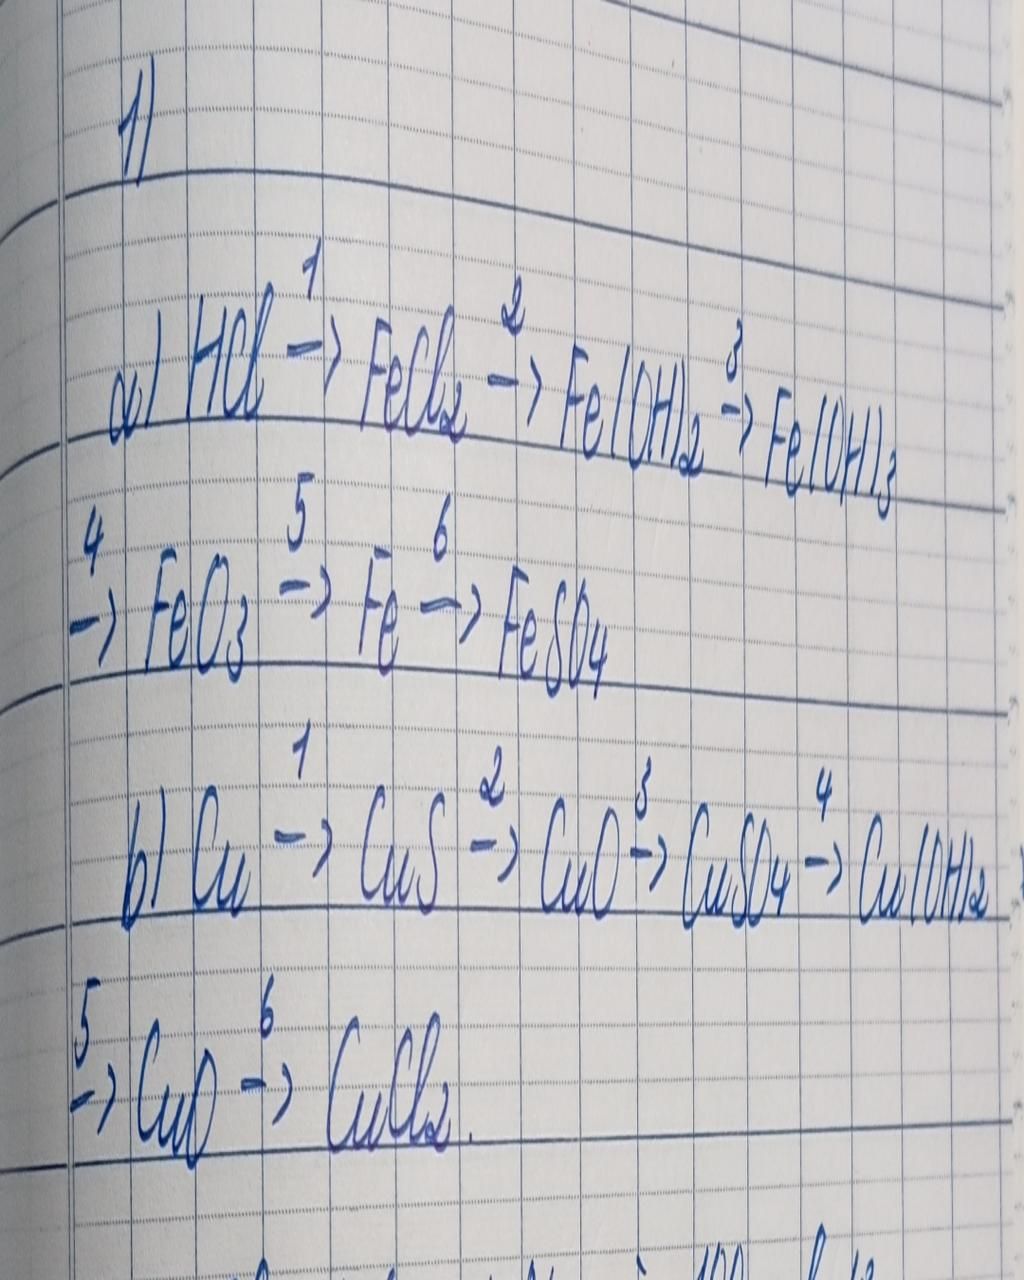 1)
a) HCl 1→ FeCl2 2→ Fe(OH)2 3→ Fe(OH)3
4→ FeO3 5→ Fe 6→ FeSO4
b) Cu 1→ CuS 2→ CuO 3→ CuSO4 4→ Cu(OH)2
5→ CuO 6→ CuCl2.